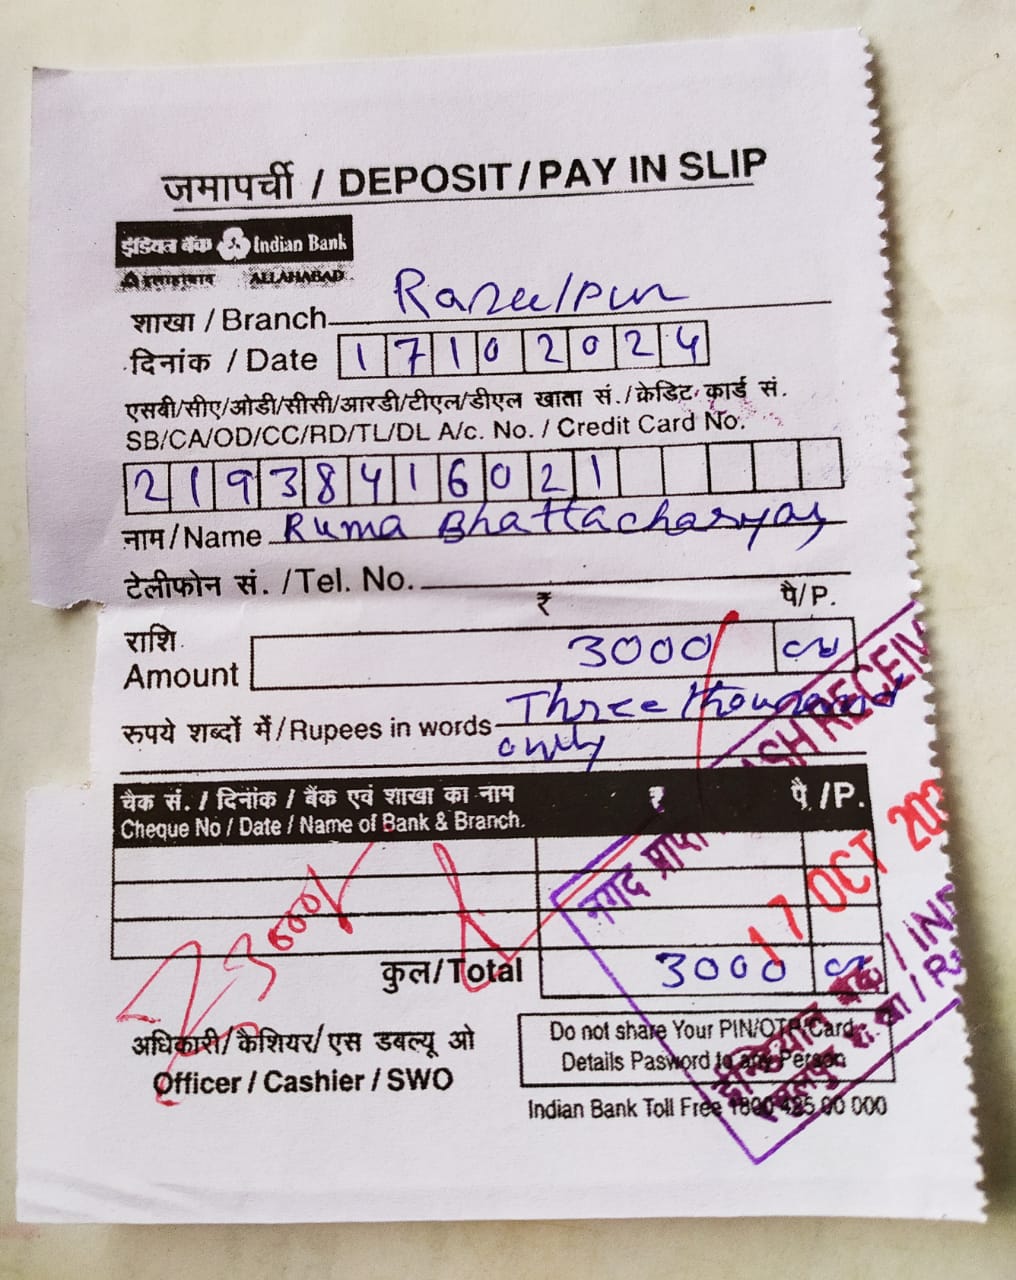 जमापर्ची / DEPOSIT / PAY IN SLIP
इंडियन बैंक Indian Bank
इलाहाबाद ALLAHABAD
शाखा / Branch
दिनांक / Date 17102024
एसबी/सीए/ओडी/सीसी/आरडी/टीएल/डीएल खाता सं. / क्रेडिट कार्ड सं.
SB/CA/OD/CC/RD/TL/DL A/c. No. / Credit Card No.
21938416021
नाम/Name Ruma Bhattacharyay
टेलीफोन सं. /Tel. No.
₹ पै/P.
राशि
Amount 3000/
रुपये शब्दों में/Rupees in words Three thousand
only
चैक सं. / दिनांक / बैंक एवं शाखा का नाम ₹ पै /P.
Cheque No / Date / Name of Bank & Branch.
3000/
कुल/Total 3000
अधिकारी/ कैशियर/ एस डबल्यू ओ
Officer / Cashier / SWO
Do not share Your PIN/OTP Card
Details Pasword to any Person
Indian Bank Toll Free 1800 425 00 000
नगद प्राप्त CASH RECEIV
17 OCT 202
इन्डियान बैंक / IND